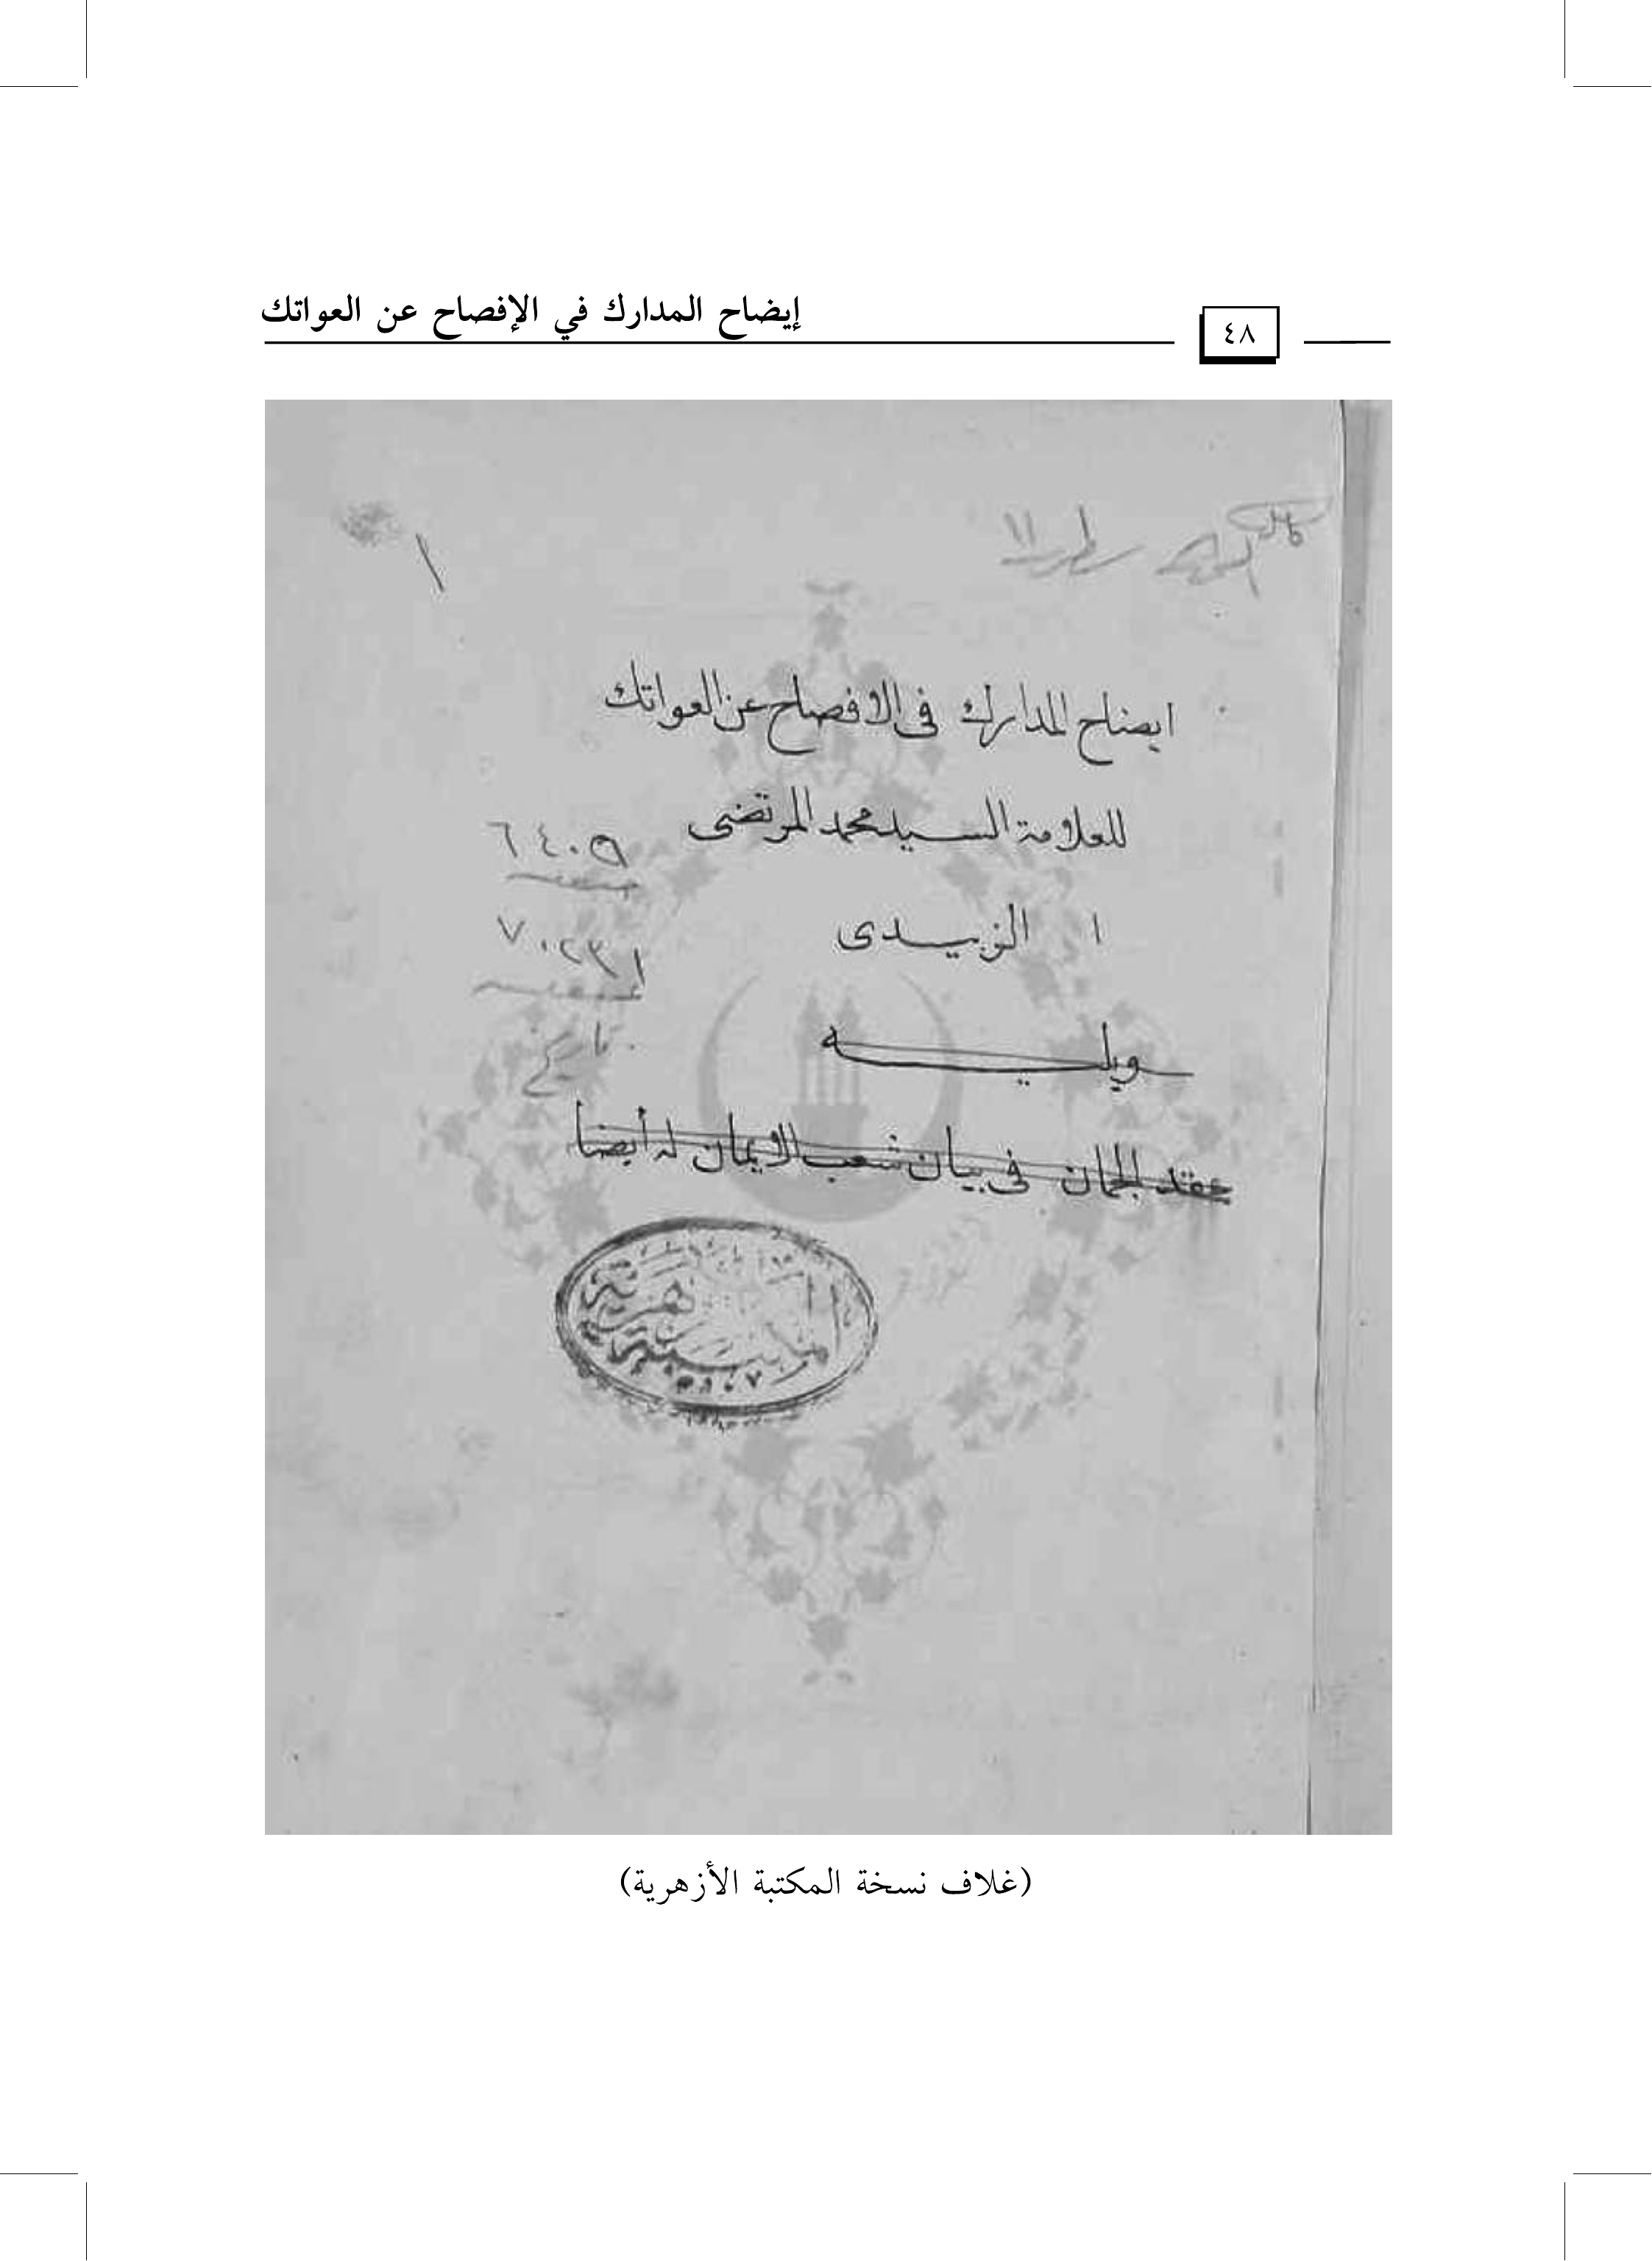 إيضاح المدارك في الإفصاح عن العواتك
٤٨
١
ايضاح المدارك فى الافصاح عن العواتك
للعلامة السيد محمد المرتضى
٦٤٠٥
ا الزبيدى
٧٠٢٣١
ويليه
تاريخ
عقد الجمان فى بيان شعب الايمان له أيضا
(غلاف نسخة المكتبة الأزهرية)